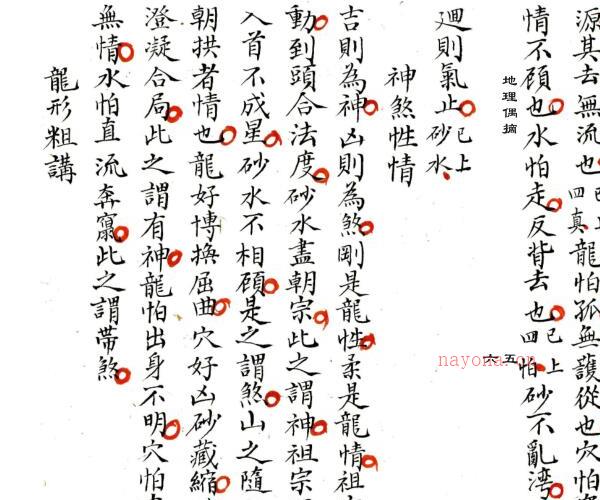 源其去無流也已上四真龍怕孤無護從也穴怕
情不顧也水怕走反背去也已上四怕砂不亂湾
地理偶摘
五六
廻則氣止砂水已上
神煞性情
吉則為神凶則為煞剛是龍性柔是龍情祖
動到頭合法度砂水盡朝宗此之謂神祖宗
入首不成星砂水不相顧是之謂煞山之隨
朝拱者情也龍好博換屈曲穴好凶砂藏縮
澄凝合局此之謂有神龍怕出身不明穴怕
無情水怕直流奔竄此之謂帶煞
龍形粗講
nayona.cn